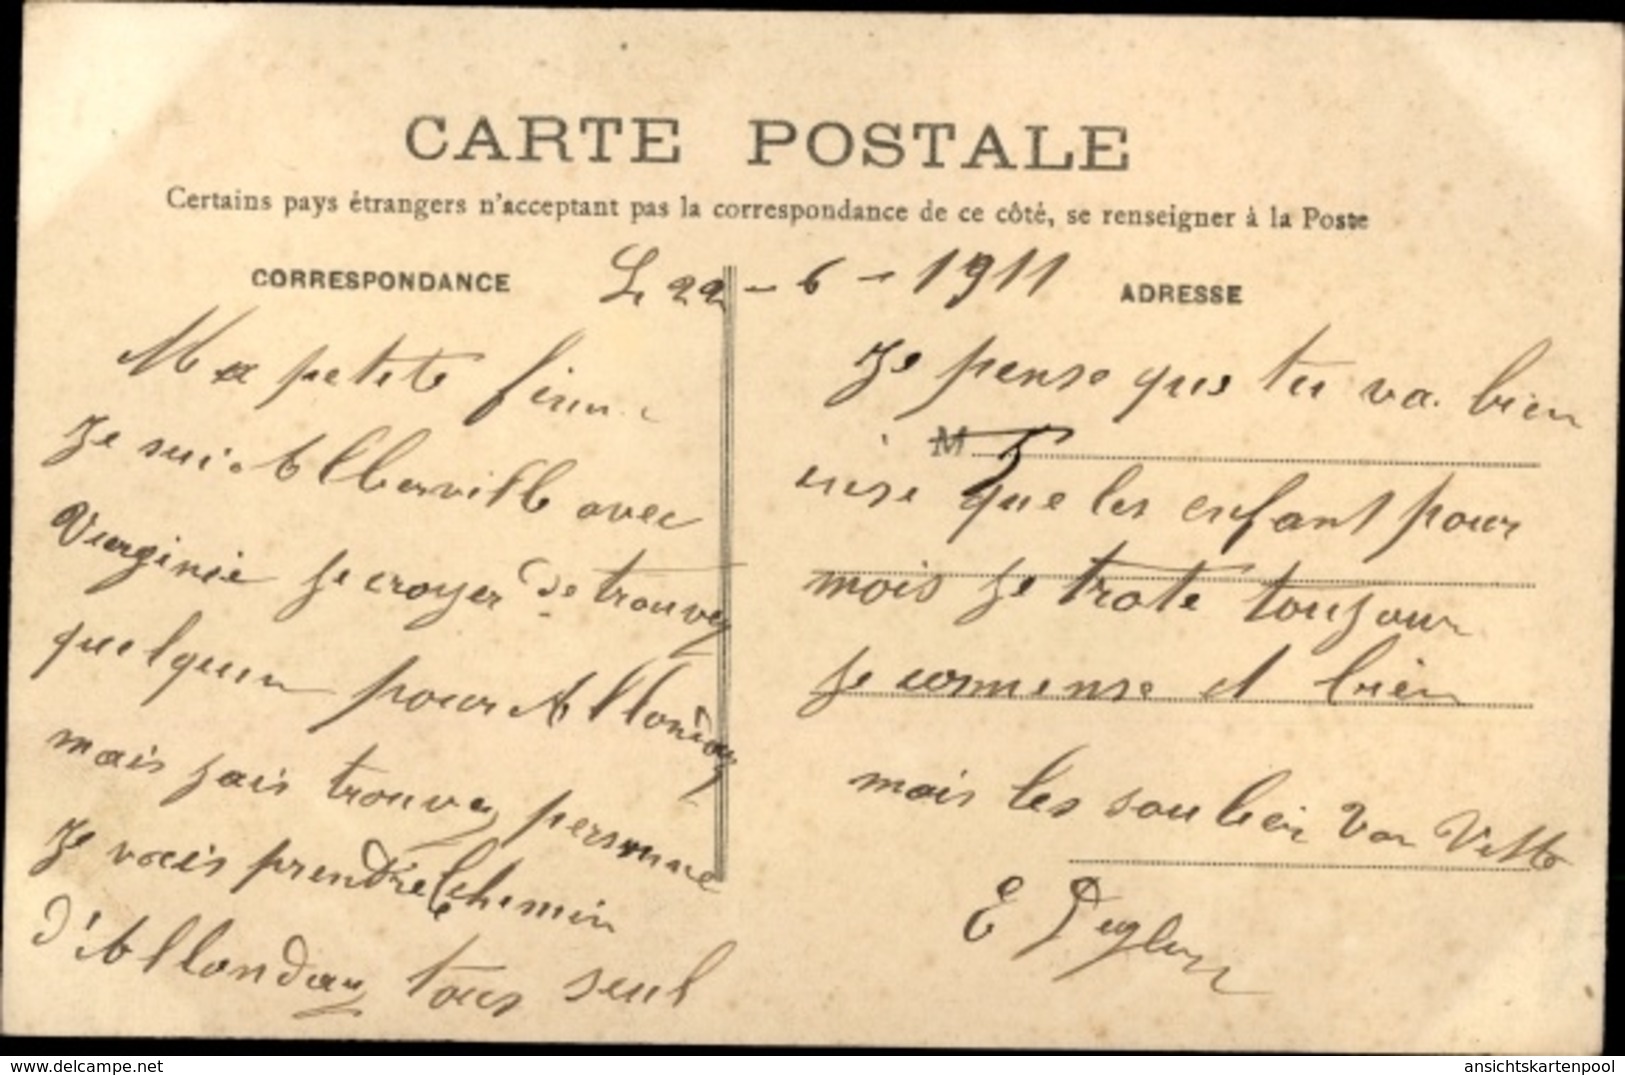 CARTE POSTALE
Certains pays étrangers n'acceptant pas la correspondance de ce côté, se renseigner à la Poste
CORRESPONDANCE
Le 22 - 6 - 1911
ADRESSE
Ma petite
Je sui Alberville avec
Virginie Je croyer de trouvez
quelquun pour Allonday
mais jais trouvez persone
Je vais prendre le chemin
d'Allonday tous seul
Je pense que tu va bien
M
que les enfant pour
mois Je trote toujour
Je comense et bien
mais les soulier von Vitte
E
delcampe.net
ansichtskartenpool